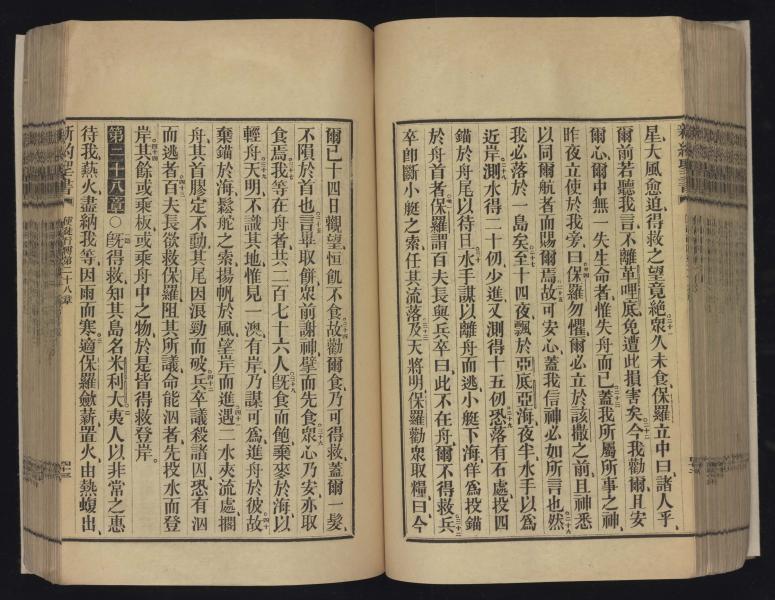 星大風愈迫得救之望竟絕衆久未食保羅立中曰諸人乎
爾前若聽我言不離革哩底免遭此損害矣今我勸爾且安
爾心爾中無一失生命者惟失舟而已蓋我所屬所事之神
昨夜立使於我旁曰保羅勿懼爾必立於該撒之前且神悉
以同爾航者而賜爾焉故可安心蓋我信神必如所言也然
我必落於一島矣至十四夜飄於亞底亞海夜半水手以爲
近岸測水得二十仞少進又測得十五仞恐落有石處投四
錨於舟尾以待旦水手謀以離舟而逃小艇下海佯爲投錨
於舟首者保羅謂百夫長與兵卒曰此不在舟爾不得救兵
卒卽斷小艇之索任其流落及天將明保羅勸衆取糧曰今
爾已十四日觀望恒飢不食故勸爾食乃可得救蓋爾一髮
不隕於首也言畢取餅衆前謝神擘而先食衆心乃安亦取
食焉我等在舟者共二百七十六人旣食而飽棄麥於海以
輕舟天明不識其地惟見一澳有岸乃謀可爲進舟於彼故
棄錨於海鬆舵之索揚帆於風望岸而進遇二水夾流處擱
舟其首膠定不動其尾因浪勁而破兵卒議殺諸囚恐有泅
而逃者百夫長欲救保羅阻其所議命能泅者先投水而登
岸其餘或乘板或乘舟中之物於是皆得救登岸
第二十八章○旣得救知其島名米利大夷人以非常之惠
待我爇火盡納我等因雨而寒適保羅斂薪置火由熱蝮出
新約聖書 使徒行傳第二十八章